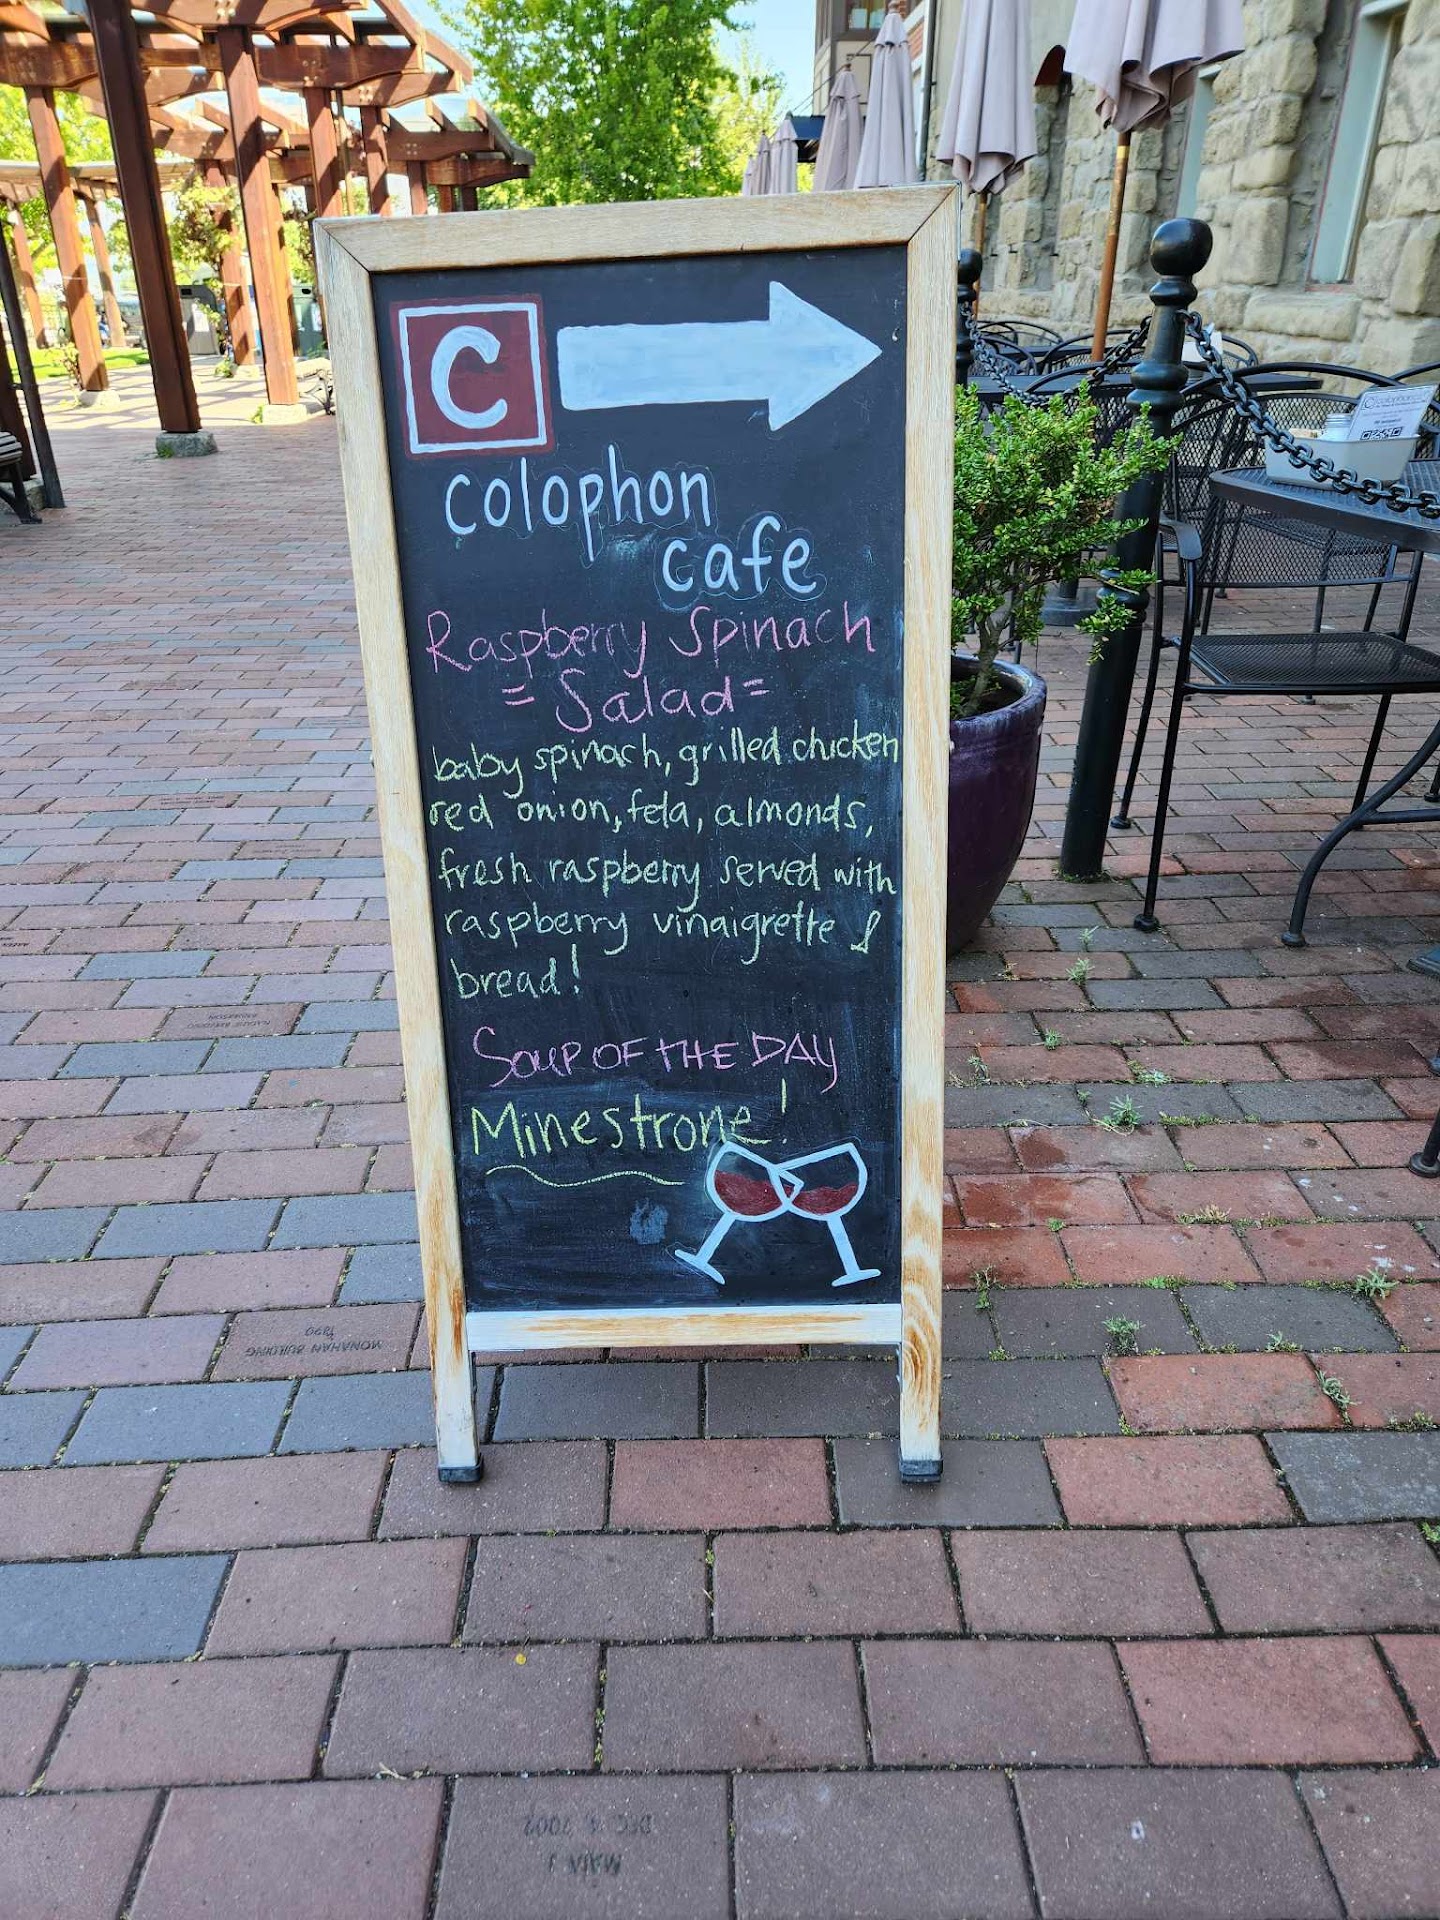 C
colophon
cafe
Raspberry Spinach
= Salad =
baby spinach, grilled chicken
red onion, feta, almonds,
fresh raspberry served with
raspberry vinaigrette &
bread!
SOUP OF THE DAY
Minestrone!
colophon
MONAHAN BUILDING
1890
DEC 4, 2002